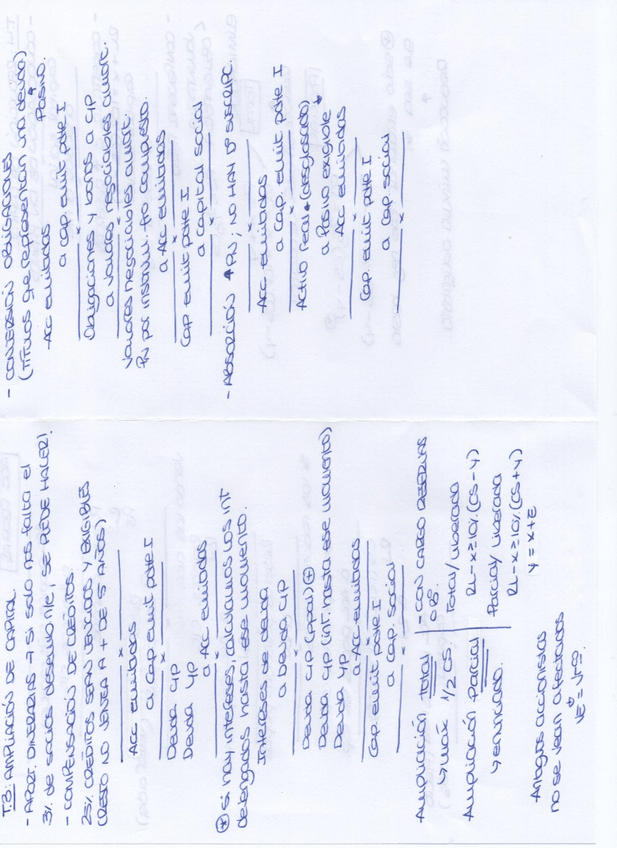 T.3: AMPLIACIÓN DE CAPITAL
- APORT. DINERARIAS → Si solo nos falta el
3% de socios desembolse, SE PUEDE HACER!
- COMPENSACIÓN DE CRÉDITOS.
25% CRÉDITOS SEAN VENCIDOS Y EXIGIBLES
(RESTO NO VENZA A + DE 5 AÑOS)
x
Acc emitidas
a Cap emit pdte I
x
Deuda C/P
Deuda L/P
a Acc emitidas
* Si hay intereses, calculamos los int
devengados hasta ese momento.
Intereses de deuda
a Deuda C/P
x
Deuda C/P (ppal) *
Deuda C/P (int. hasta ese momento)
Deuda L/P
a Acc emitidas
x
Cap emit pdte I
a Cap. Social
x
Ampliación total - CON CARGO RESERVAS
↳ max 1/2 CS. Total/ liberada
RL - X ≥ 10% (CS + Y)
Ampliación Parcial Parcial/ liberada
↳ enunciado. RL - X ≥ 10% (CS + Y)
Y = X + E
Antiguos accionistas
no se vean afectados
- CONVERSIÓN OBLIGACIONES
(TÍTULOS QUE REPRESENTAN una deuda)
Pasivo.
Acc emitidas
a cap. emit pdte I
x
Obligaciones y bonos a L/P
a valores negociables amort.
x
Valores negociables amort.
PN por instrum. fro compuesto.
a Acc emitidas
x
Cap emit pdte I
a Capital social
x
- ABSORCIÓN ↑ PN; NO HAY D SUSCRIPC.
x
Acc emitidas
a Cap. emit pdte I
x
Activo real (desglosado)
a Pasivo exigible
Acc emitidas
x
Cap. emit pdte I
a Cap social
x